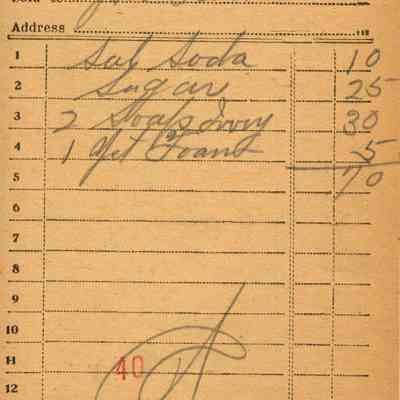 Address
1 Sal Soda 10
2 Sugar 25
3 2 Soaps Ivory 30
4 1 Yst Foam 5
5 70
6
7
8
9
10
11 40
12